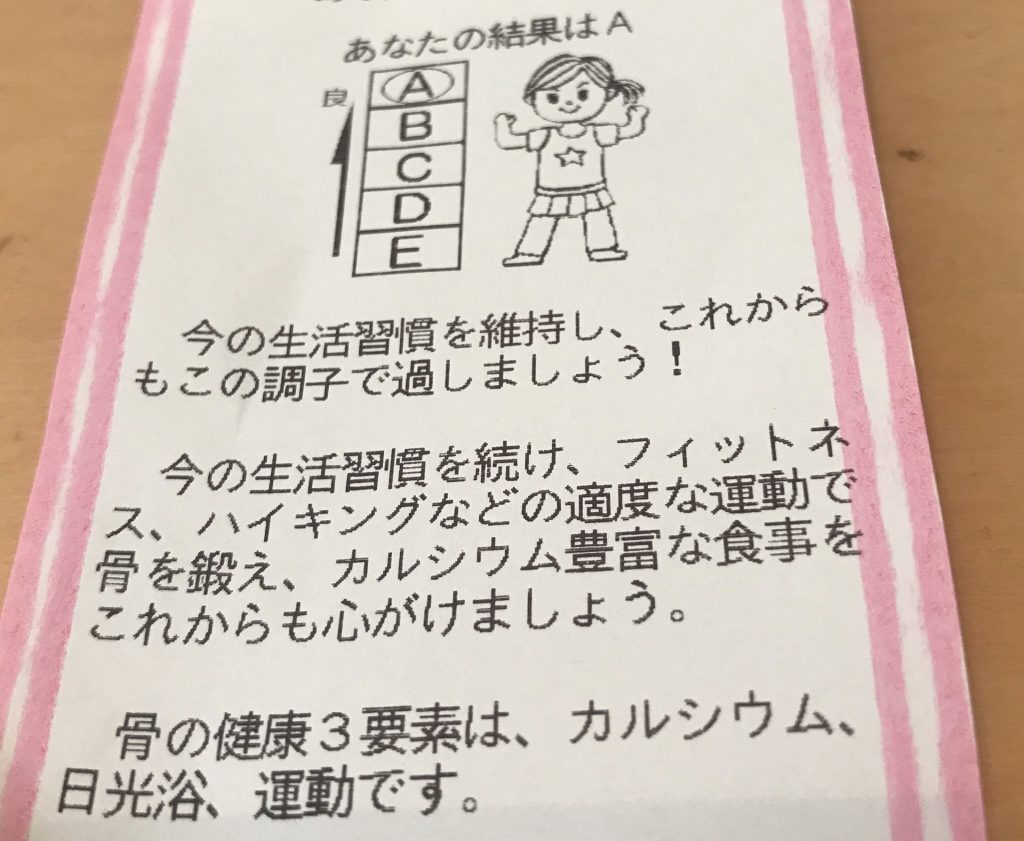 あなたの結果はA
良
A
B
C
D
E
今の生活習慣を維持し、これから
もこの調子で過しましょう！
今の生活習慣を続け、フィットネ
ス、ハイキングなどの適度な運動で
骨を鍛え、カルシウム豊富な食事を
これからも心がけましょう。
骨の健康３要素は、カルシウム、
日光浴、運動です。